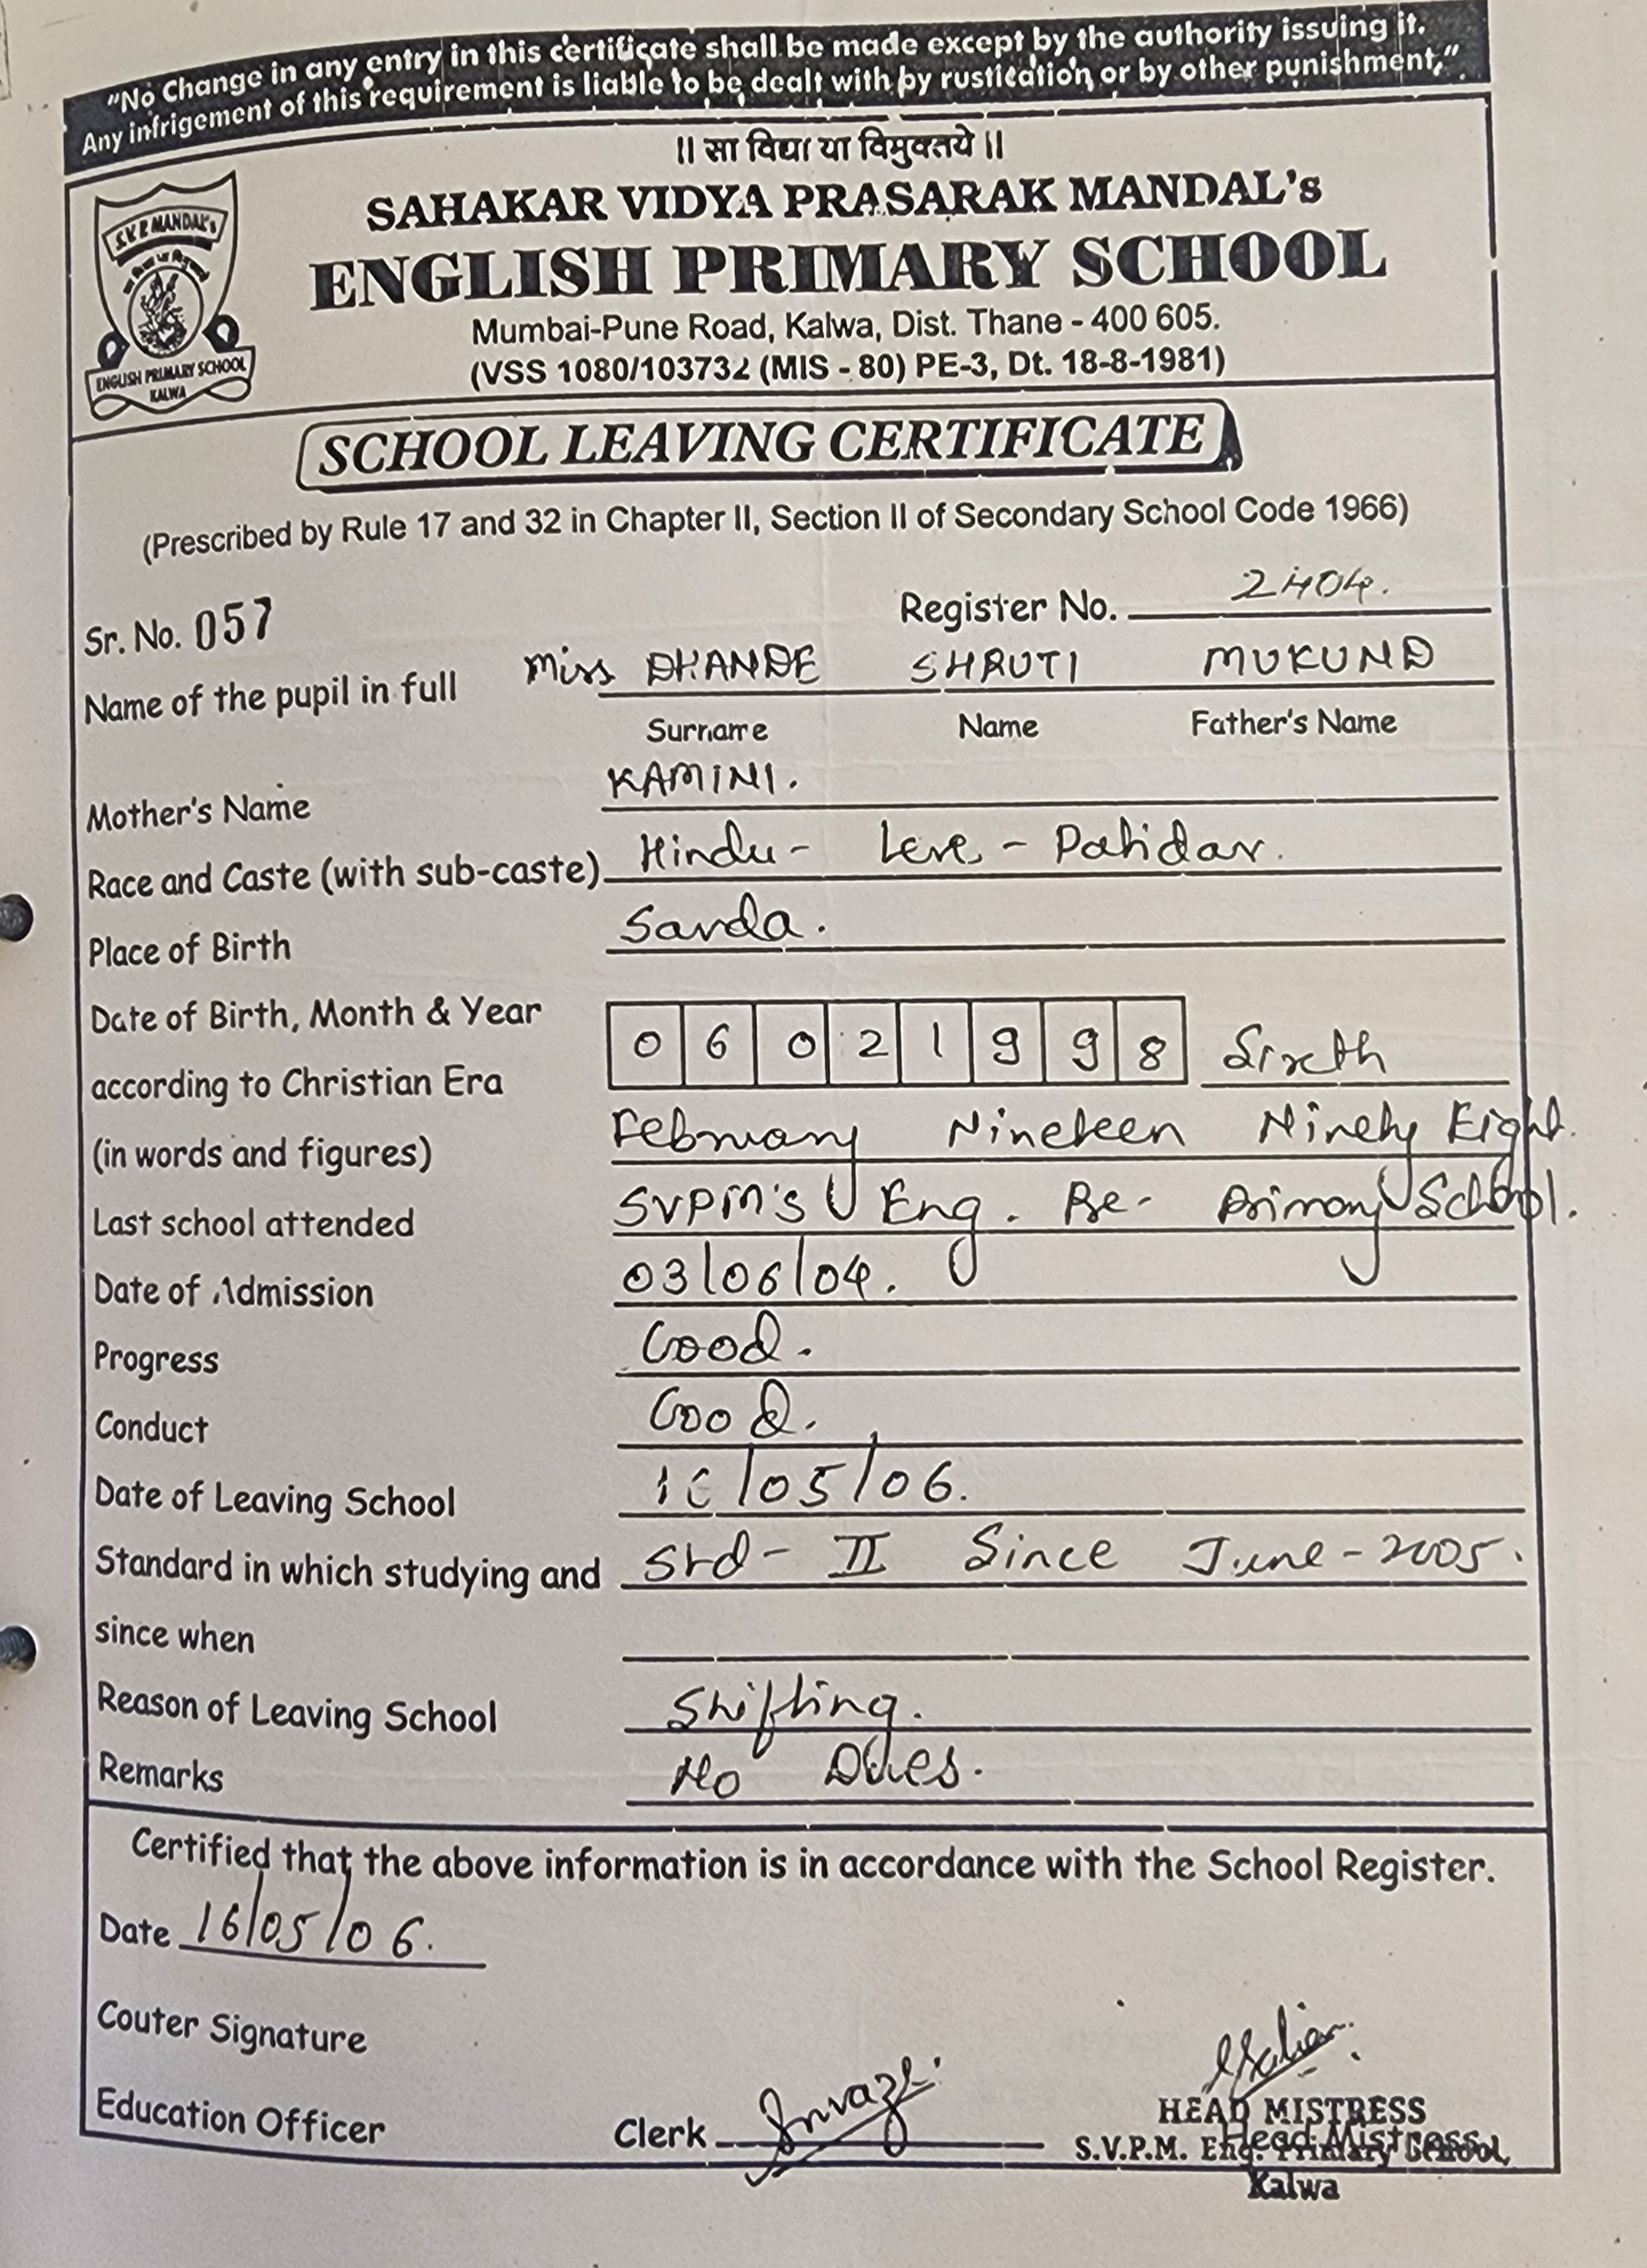 "No Change in any entry in this certificate shall be made except by the authority issuing it.
Any infrigement of this requirement is liable to be dealt with by rustication or by other punishment,"
|| सा विद्या या विमुक्तये ||
S.V.P. MANDAL's
ENGLISH PRIMARY SCHOOL
KALWA
SAHAKAR VIDYA PRASARAK MANDAL's
ENGLISH PRIMARY SCHOOL
Mumbai-Pune Road, Kalwa, Dist. Thane - 400 605.
(VSS 1080/103732 (MIS - 80) PE-3, Dt. 18-8-1981)
SCHOOL LEAVING CERTIFICATE
(Prescribed by Rule 17 and 32 in Chapter II, Section II of Secondary School Code 1966)
Sr. No. 057 Register No. 2404.
Name of the pupil in full Miss DHANDE SHRUTI MUKUND
Surname Name Father's Name
Mother's Name KAMINI.
Race and Caste (with sub-caste) Hindu - Leve - Patidar.
Place of Birth Savda.
Date of Birth, Month & Year 0 6 0 2 1 9 9 8 Sixth
according to Christian Era
(in words and figures) February Nineteen Ninety Eight.
Last school attended SVPM's Eng. Pre- Primary School.
Date of Admission 03/06/04.
Progress Good.
Conduct Good.
Date of Leaving School /05/06.
Standard in which studying and Std - II Since June - 2005.
since when
Reason of Leaving School Shifting.
Remarks No Dues.
Certified that the above information is in accordance with the School Register.
Date 16/05/06.
Couter Signature
Education Officer Clerk
HEAD MISTRESS
Head Mistress
S.V.P.M. Eng. Primary School,
Kalwa